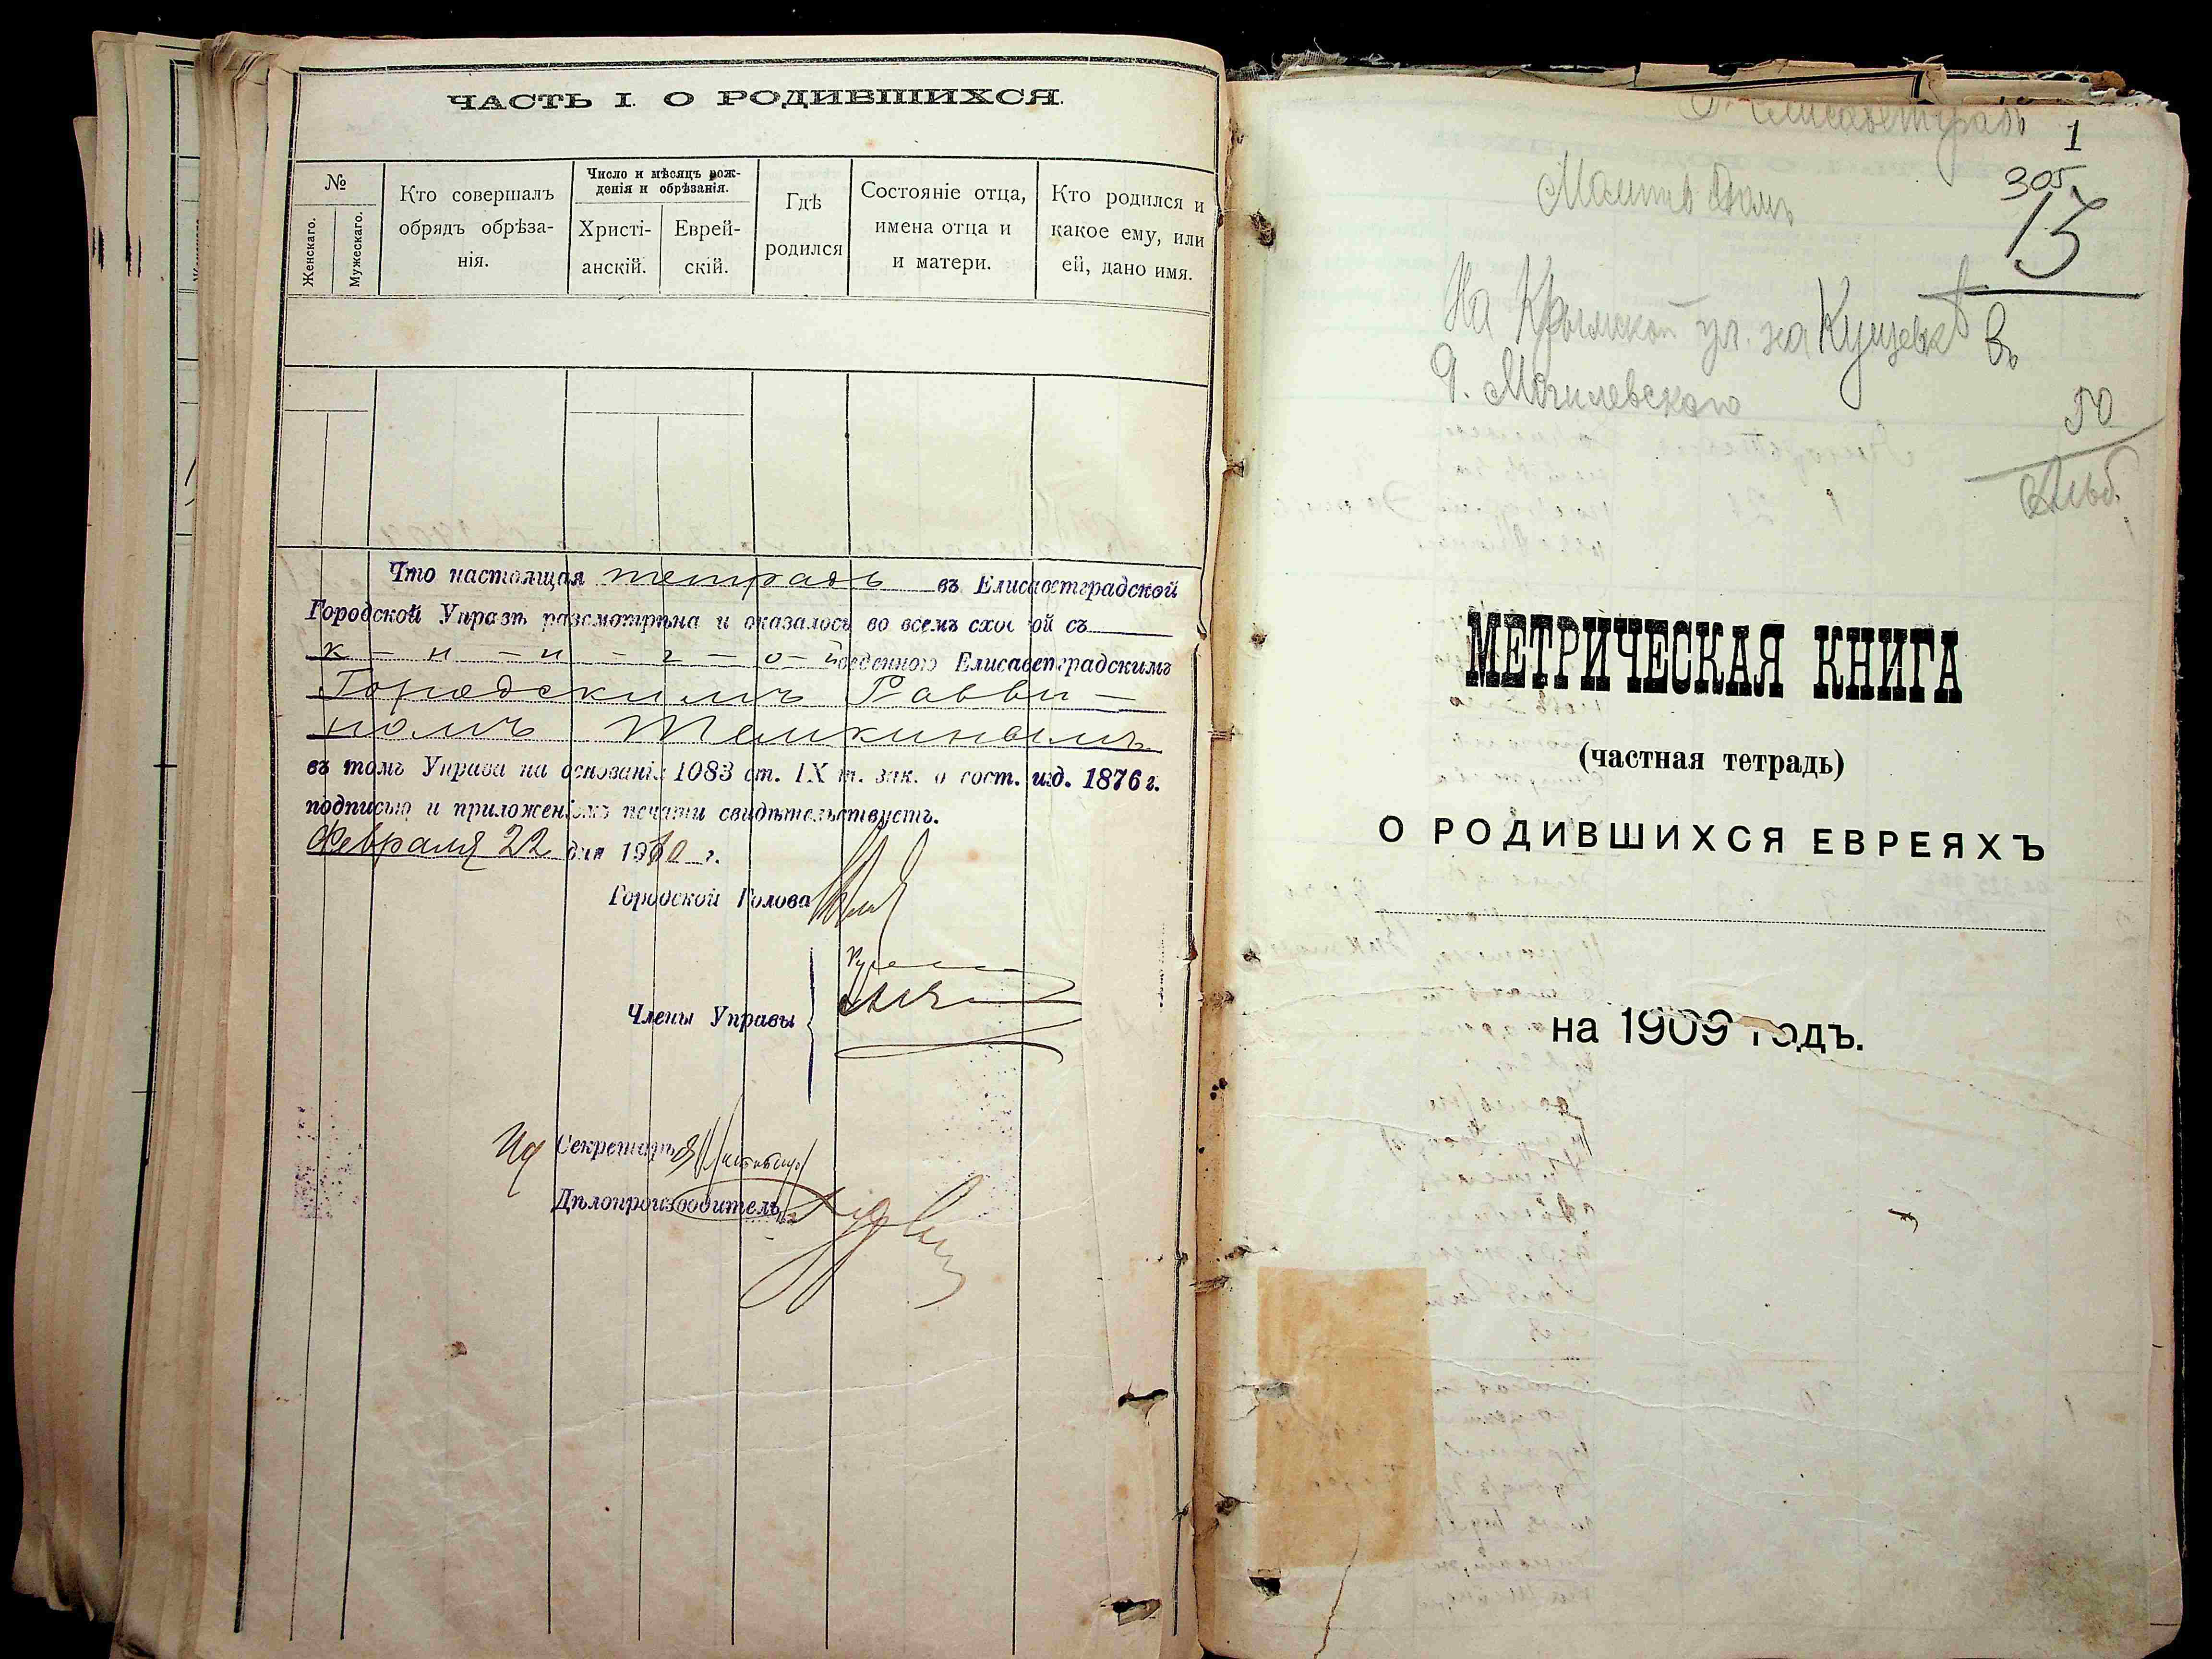 ЧАСТЬ I. О РОДИВШИХСЯ.
№
Женскаго.
Мужескаго.
Кто совершалъ
обрядъ обрѣза-
нія.
Число и мѣсяцъ рож-
денія и обрѣзанія.
Христі-
анскій.
Еврей-
скій.
Гдѣ
родился
Состояніе отца,
имена отца и
и матери.
Кто родился и
какое ему, или
ей, дано имя.
Что настоящая тетрадь въ Елисаветградской
Городской Управѣ разсмотрѣна и оказалось во всемъ сход ой съ
к - н - и - г - о - й веденною Елисаветградскимъ
Городскимъ Равви-
номъ Темкинымъ
въ томъ Управа на основаніи 1083 ст. IX т. зак. о сост. изд. 1876 г.
подписью и приложеніемъ печати свидѣтельствуетъ.
Февраля 22 дня 1910 г.
Городской Голова
Члены Управы
Ид Секретаря
Дѣлопроизводитель
г. Елисаветградъ
1
Молитв. домъ
305
13
На Крымской ул. на Кущевкѣ въ
д. Могилевскаго
50
Альб.
МЕТРИЧЕСКАЯ КНИГА
(частная тетрадь)
О РОДИВШИХСЯ ЕВРЕЯХЪ
на 1909 годъ.